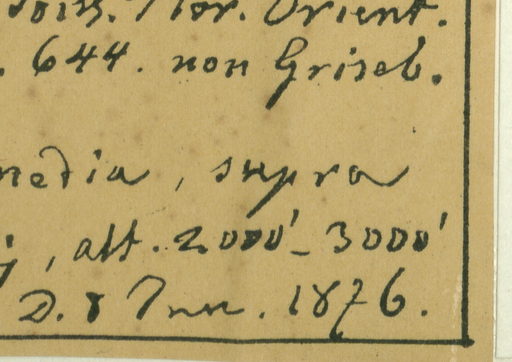 Boiss. Flor. Orient.
. 644. non Griseb.
media, supra
, alt. 2000'-3000'
D. 8 Jun. 1876.